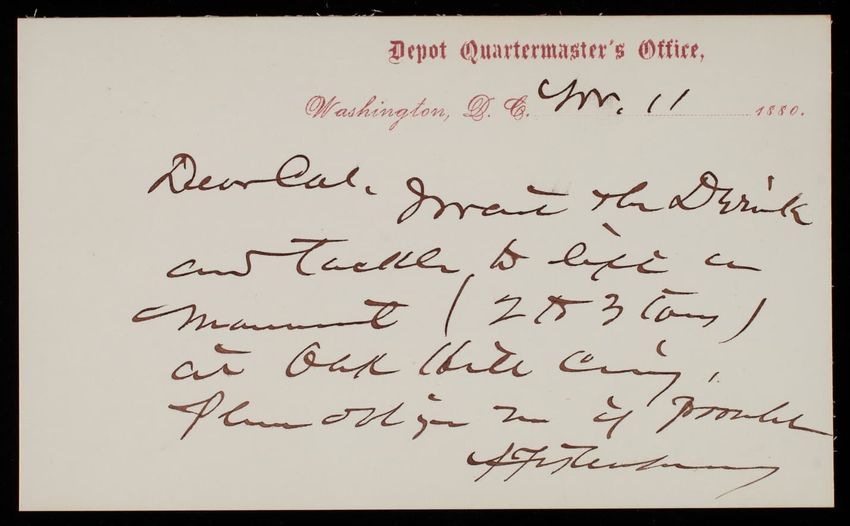 Depot Quartermaster's Office,
Washington, D. C. Nov. 11 1880.
Dear Col. I want the Derrick
and tackle to lift a
Monument (2 to 3 tons)
at Oak Hill Cemy.
Please oblige me if possible